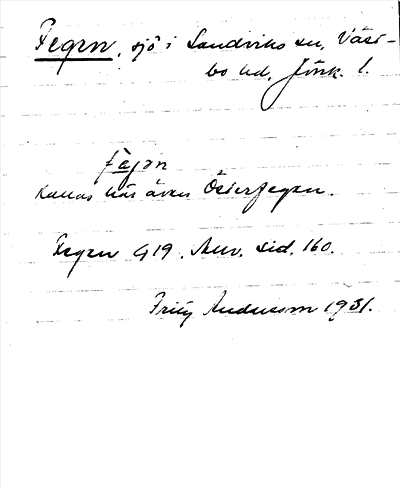 Fegen, sjö i Sandviks sn, Väst-
bo hd, Jönk. l.
fägən
Kallas här även Österfegen.
Fegen G19. Anv. sid. 160.
Fritz Andersson 1931.